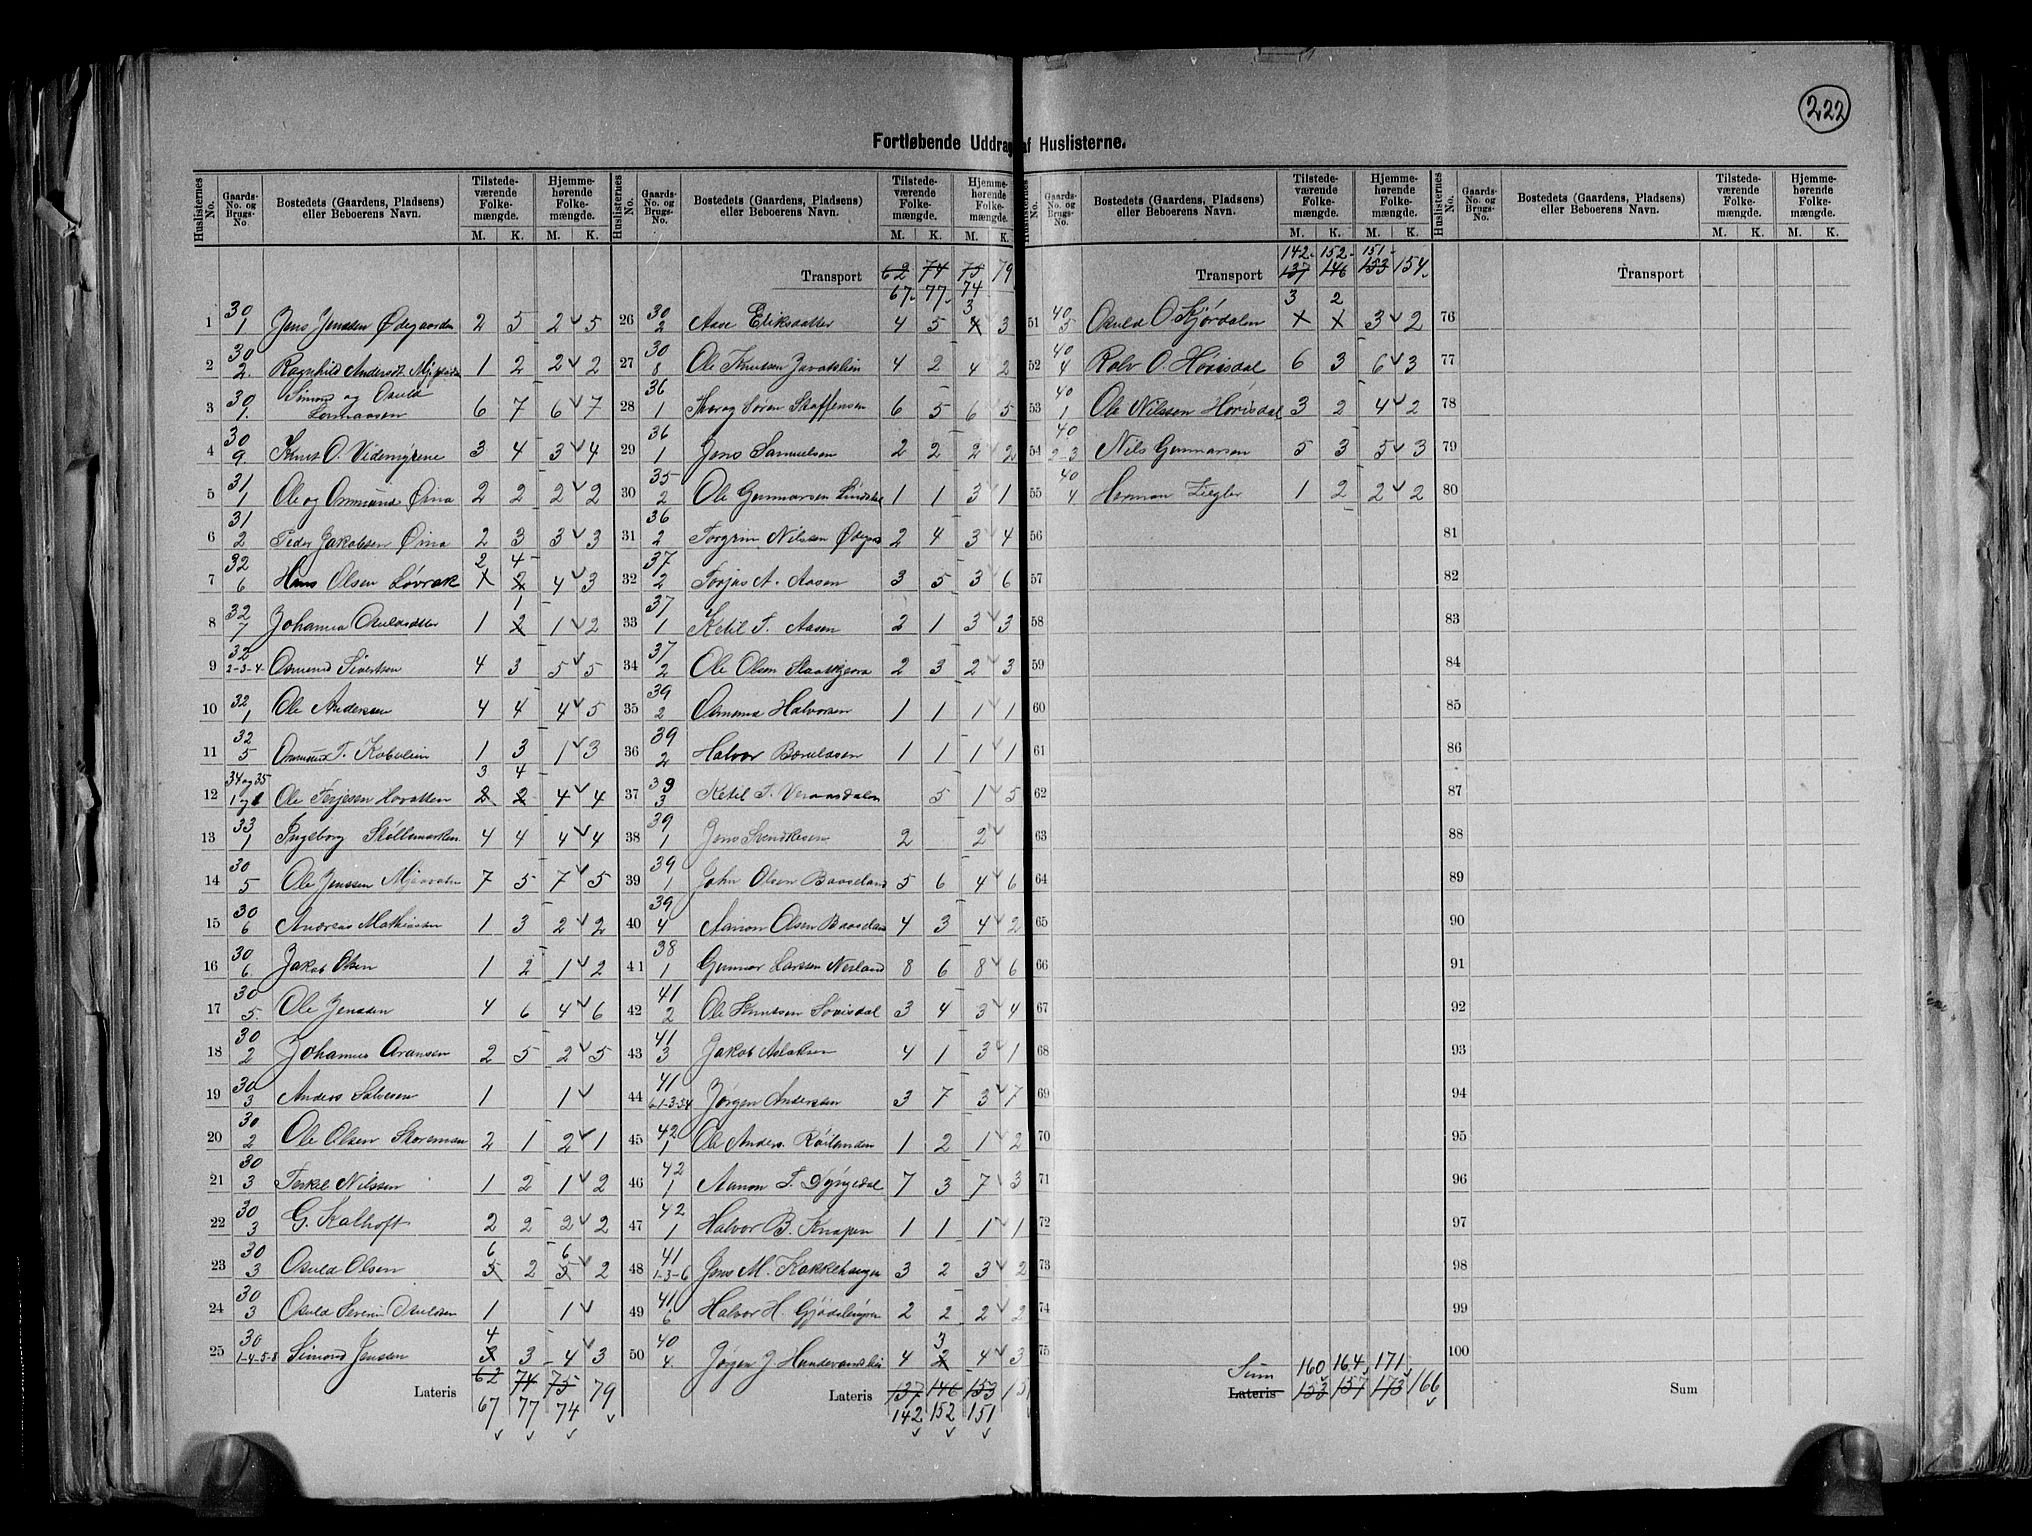 222
Fortløbende Uddrag af Huslisterne.
Huslisternes No. Gaards-No. og Brugs-No. Bostedets (Gaardens, Pladsens) eller Beboerens Navn. Tilstedeværende Folkemængde. M. K. Hjemmehørende Folkemængde. M. K.
1 30/1 Jens Jenssen Ødegaarden 2 5 2 5
2 30/2. Ragnhild Andersdt. 1 2 2 2
3 30/1. Simon og Osuld 6 7 6 7
4 30/9. Knut O. Videmyrene 3 4 3 4
5 31/1 Ole og Ommund Øina 2 2 2 2
6 31/2 Peder Jakobsen Øina 2 3 3 3
7 32/6 Hans Olsen Løvrak 2 4 4 3
8 32/7 Johanna Osuldsdatter 1 1 1 2
9 32/2-3-4 Osmund Sivertsen 4 3 5 5
10 32/1 Ole Andersen 4 4 4 5
11 32/5 Ommund T. 1 3 1 3
12 34 og 35/1 og 1 Ole Terjesen Hovatten 3 4 4 4
13 33/1 Ingeborg Støllemarken 4 4 4 4
14 30/5 Ole Jenssen 7 5 7 5
15 30/6 Andreas Mathiassen 1 3 2 2
16 30/6 Jakob Olsen 1 2 1 2
17 30/5. Ole Jenssen 4 6 4 6
18 30/2 Johannes Aransen 2 5 2 5
19 30/3 Anders Salvesen 1 1
20 30/2 Ole Olsen Storemoen 2 1 2 1
21 30/3 Terkel Nilssen 1 2 1 2
22 30/3 G. Kalhoft 2 2 2 2
23 30/3 Osuld Olsen 6 2 6 2
24 30/3 Osuld Severin Osuldsen 1 1
25 30/1-4-5-8 Simon Jenssen 4 3 4 3
62 74 75 79
Lateris 67 77 74
Huslisternes No. Gaards-No. og Brugs-No. Bostedets (Gaardens, Pladsens) eller Beboerens Navn. Tilstedeværende Folkemængde. M. K. Hjemmehørende Folkemængde. M. K.
Transport 62 74 75 79
67. 77. 74
26 30/2 Aase Eriksdatter 4 5 3 3
27 30/8 Ole Knutsen 4 2 4 2
28 36/1 Søren Staffensen 6 5 6 5
29 36/1 Jens Samuelsen 2 2 2 2
30 35/2 Ole Gunnarsen 1 1 3 1
31 36/2 Torgrim Nilssen 2 4 3 4
32 37/2 Torjus A. Aasen 3 5 3 6
33 37/1 Ketil T. Aasen 2 1 3 3
34 37/2 Ole Olsen 2 3 2 3
35 39/2 Osmund Halvorsen 1 1 1 1
36 39/2 Halvor Bærulasen 1 1 1 1
37 39/3 Ketil T. 5 1 5
38 39/1 Jens 2 2
39 39/1 John Olsen Baaseland 5 6 4 6
40 39/4 Aanon Olsen Baaseland 4 3 4 2
41 38/1 Gunnar Larssen Nesland 8 6 8 6
42 41/2 Ole Knutsen Sovisdal 3 4 3 4
43 41/3 Jakob Aslaksen 4 1 3 1
44 41/ Jørgen Andersen 3 7 3 7
45 42/1 Ole Anders. 1 2 1 2
46 42/1 Aanon T. 7 3 7 3
47 42/1 Halvor B. Knapen 1 1 1 1
48 41/1-3-6 Jens M. 3 2 3 2
49 41/6 Halvor H. 2 2 2 2
50 40/4. Jørgen J. 4 3 4 3
Lateris 137 146 153
142 152 151
Huslisternes No. Gaards-No. og Brugs-No. Bostedets (Gaardens, Pladsens) eller Beboerens Navn. Tilstedeværende Folkemængde. M. K. Hjemmehørende Folkemængde. M. K.
142 152 151
Transport 137 146 153 154
51 40/5 Osuld O. 3 2 3 2
52 40/4 Rolv O. Hovisdal 6 3 6 3
53 40/1 Ole Nilssen Hovisdal 3 2 4 2
54 40/2-3 Nils Gunnarsen 5 3 5 3
55 40/4 Herman Ziegler 1 2 2 2
56
57
58
59
60
61
62
63
64
65
66
67
68
69
70
71
72
73
74
75
Sum 160 164 171
Lateris 153 157 173 166
Huslisternes No. Gaards-No. og Brugs-No. Bostedets (Gaardens, Pladsens) eller Beboerens Navn. Tilstedeværende Folkemængde. M. K. Hjemmehørende Folkemængde. M. K.
Transport
76
77
78
79
80
81
82
83
84
85
86
87
88
89
90
91
92
93
94
95
96
97
98
99
100
Sum